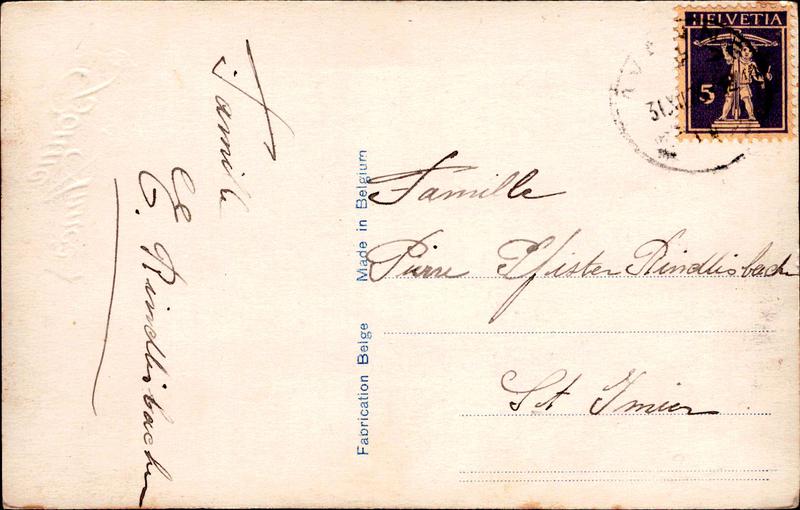 Famille
E. Rindlisbacher
Fabrication Belge Made in Belgium
HELVETIA
5
31.XII
Famille
Pierre Pfister Rindlisbacher
St Imier